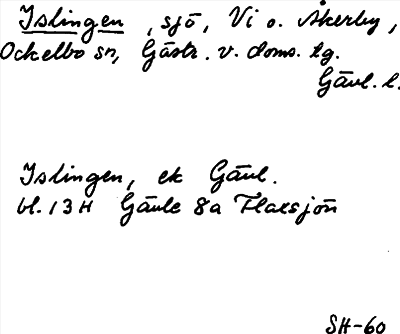 Islingen, sjö, Vi o. Åkerby,
Ockelbo sn, Gästr. v. doms. tg.
Gävl. l.
Islingen, ek Gävl.
bl. 13H Gävle 8a Flaksjön
SH-60